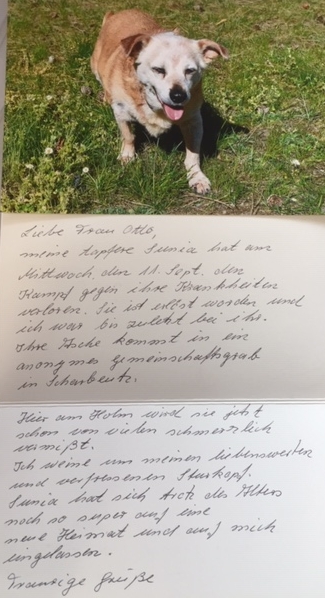 Liebe Frau Otto,
meine tapfere Sunia hat am
Mittwoch, den 11. Sept. den
Kampf gegen ihre Krankheiten
verloren. Sie ist erlöst worden und
ich war bis zuletzt bei ihr.
Ihre Asche kommt in ein
anonymes Gemeinschaftsgrab
in Scharbeutz.
Hier am Holm wird sie jetzt
schon von vielen schmerzlich
vermißt.
Ich weine um meinen liebenswerten
und verfressenen Sturkopf.
Sunia hat sich trotz des Alters
noch so super auf eine
neue Heimat und auf mich
eingelassen.
Traurige Grüße